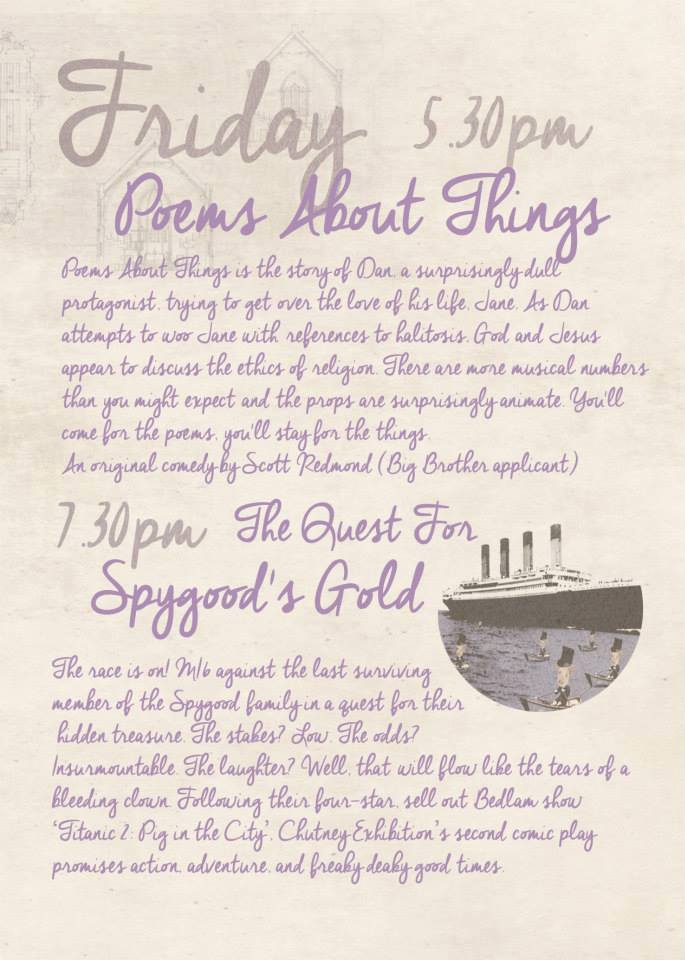 Friday 5.30pm
Poems About Things
Poems About Things is the story of Dan, a surprisingly dull
protagonist, trying to get over the love of his life, Jane. As Dan
attempts to woo Jane with references to halitosis, God and Jesus
appear to discuss the ethics of religion. There are more musical numbers
than you might expect and the props are surprisingly animate. You'll
come for the poems, you'll stay for the things.
An original comedy by Scott Redmond (Big Brother applicant)
7.30pm The Quest For
Spygood's Gold
The race is on! M16 against the last surviving
member of the Spygood family in a quest for their
hidden treasure. The stakes? Low. The odds?
Insurmountable. The laughter? Well, that will flow like the tears of a
bleeding clown. Following their four-star, sell out Bedlam show
'Titanic 2: Pig in the City', Chutney Exhibition's second comic play
promises action, adventure, and freaky deaky good times.